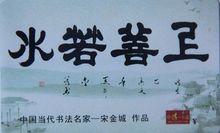 上善若水
中国当代书法名家—宋金城 作品